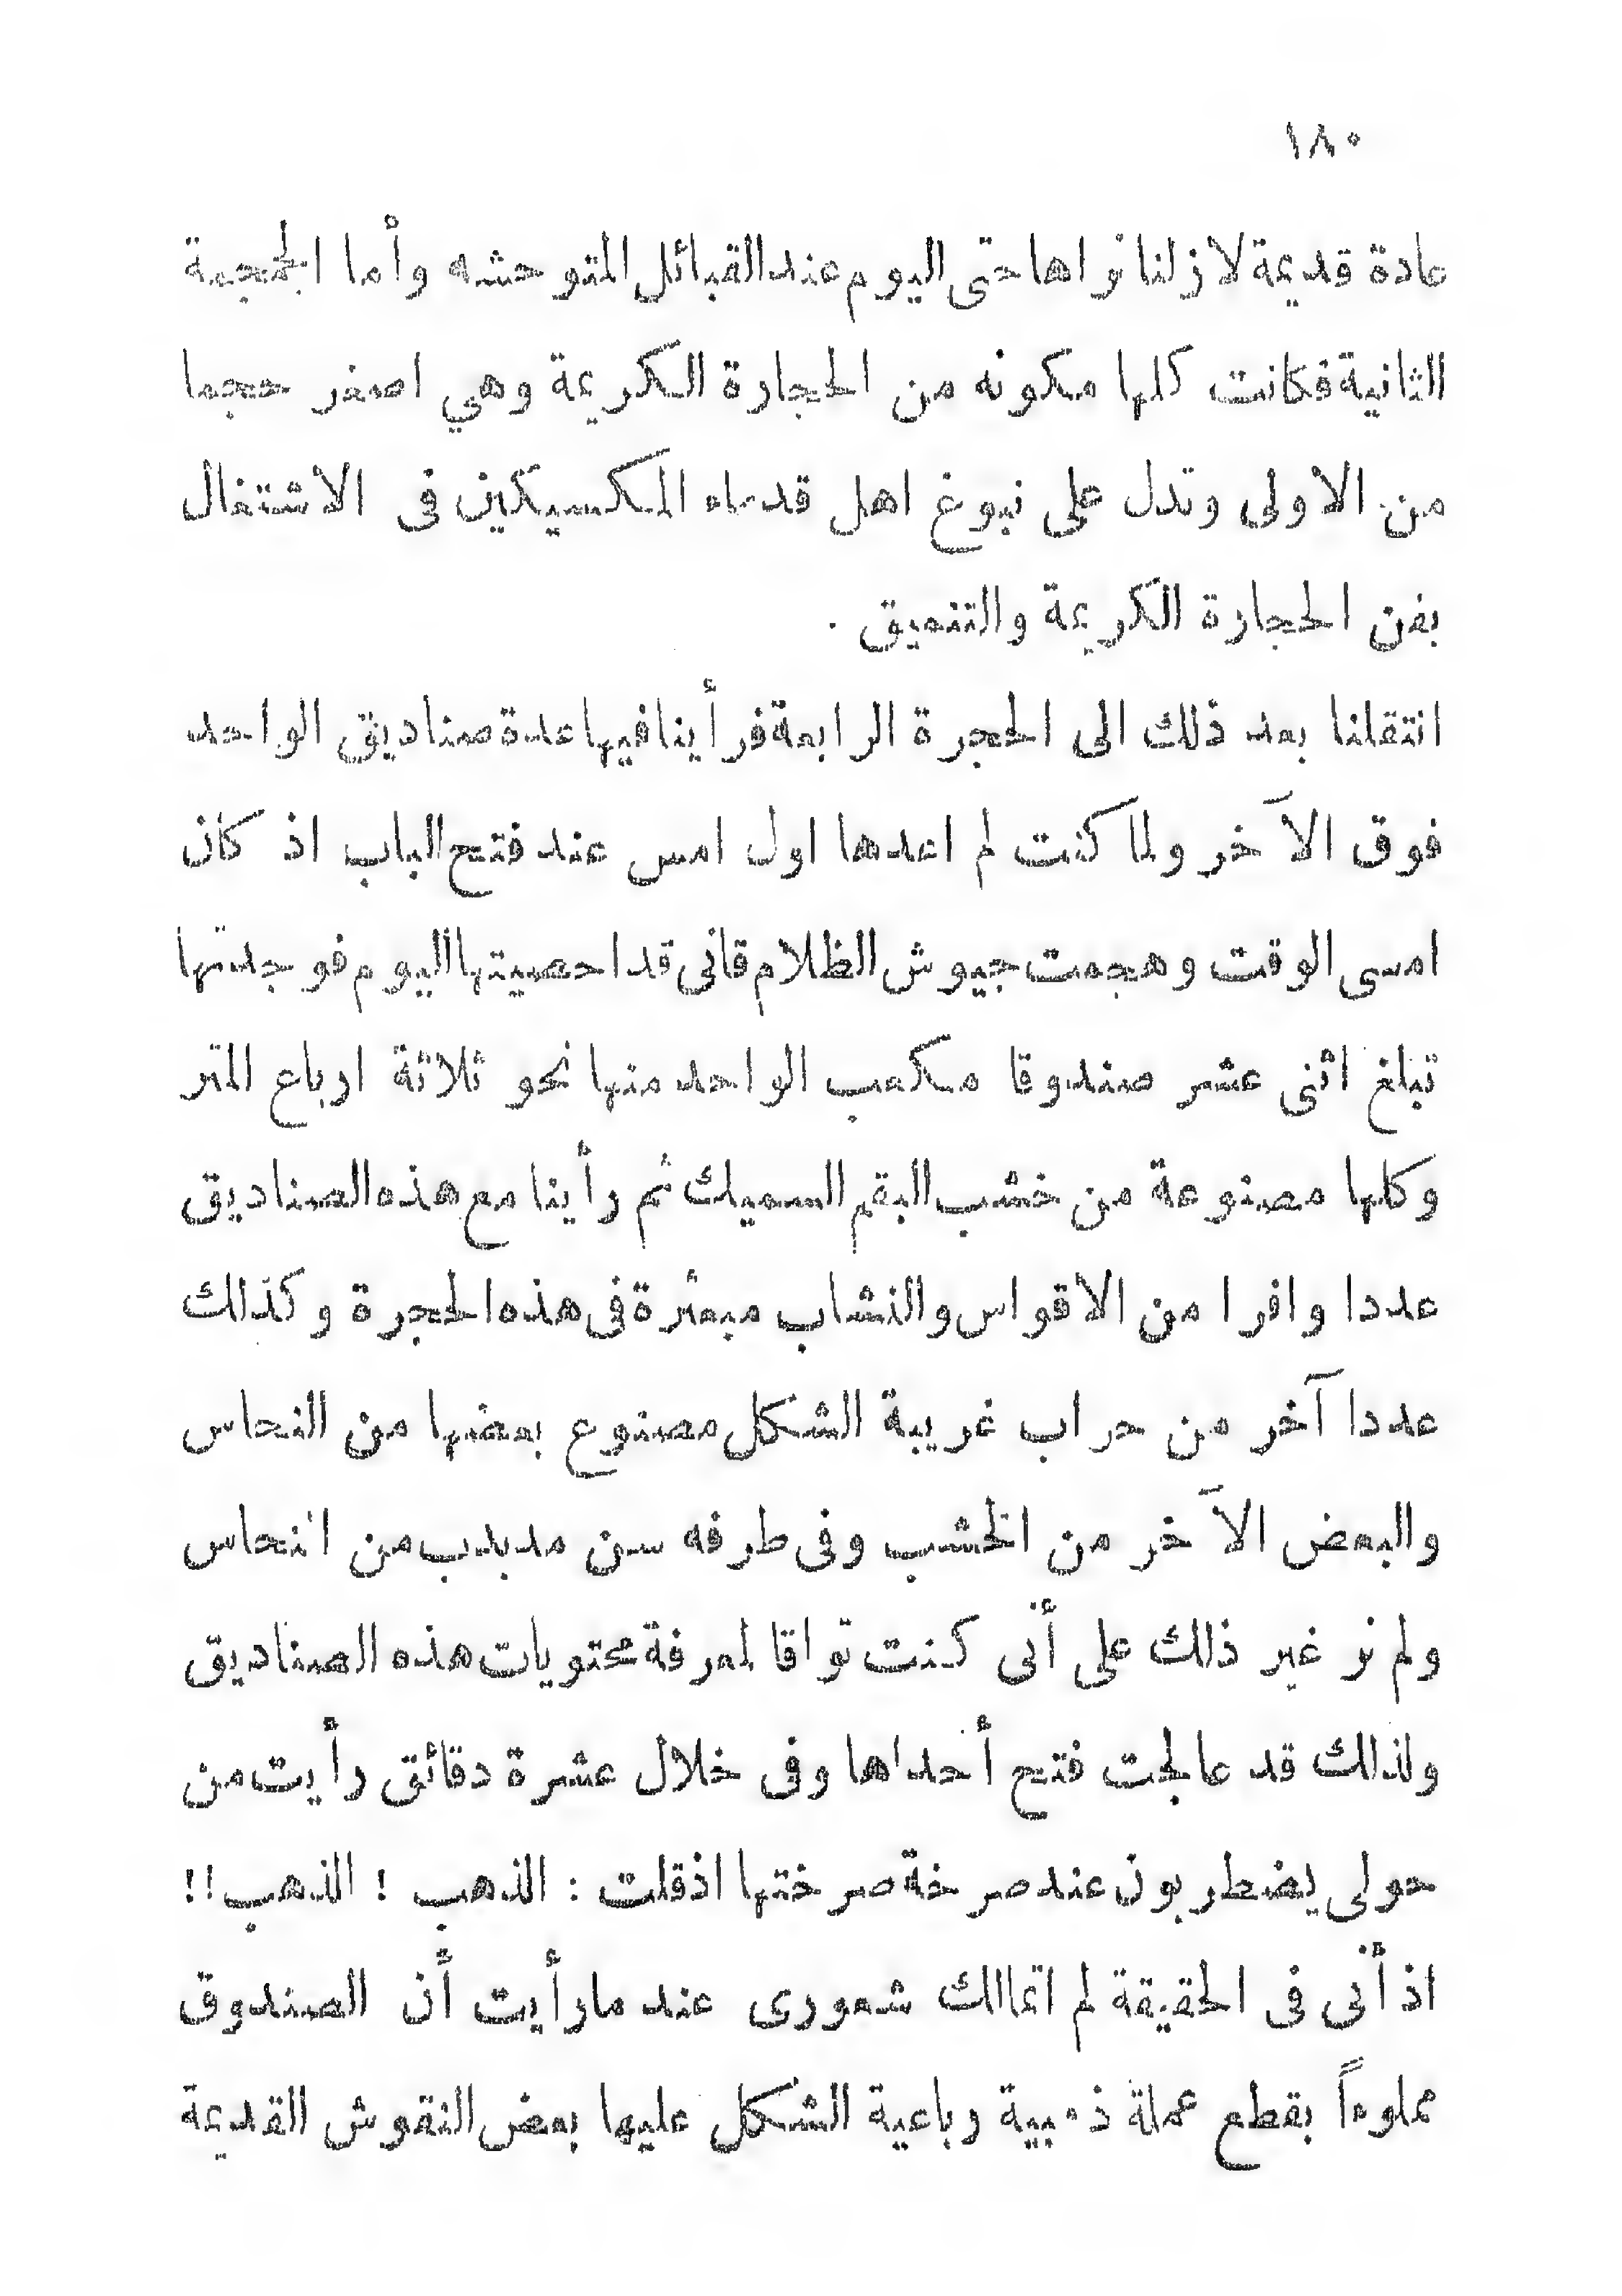 ١٨٠
عادة قديمة لا زلنا نراها حتى اليوم عند القبائل المتوحشه وأما الجمجمة
الثانية فكانت كلها مكونه من الحجارة الكريمة وهي اصغر حجما
من الاولى وتدل على نبوغ اهل قدماء المكسيكين فى الاشتغال
بفن الحجارة الكريمة والتنميق .
انتقلنا بعد ذلك الى الحجرة الرابعة فرأينا فيها عدة صناديق الواحد
فوق الآخر ولما كنت لم اعدها اول امس عند فتح الباب اذ كان
امسى الوقت وهجمت جيوش الظلام فانى قد احصيتها اليوم فوجدتها
تبلغ اثنى عشر صندوقا مكعب الواحد منها نحو ثلاثة ارباع المتر
وكلها مصنوعة من خشب البقم السميك ثم رأينا مع هذه الصناديق
عددا وافرا من الاقواس والنشاب مبعثرة فى هذه الحجرة وكذلك
عددا آخر من حراب غريبة الشكل مصنوع بعضها من النحاس
والبعض الآخر من الخشب وفى طرفه سن مدبدب من النحاس
ولم نر غير ذلك على أنى كنت تواقا لمعرفة محتويات هذه الصناديق
ولذلك قد عالجت فتح أحداها وفى خلال عشرة دقائق رأيت من
حولى يضطربون عند صرخة صرختها اذ قلت : الذهب ! الذهب !!
اذ أنى فى الحقيقة لم اتمالك شعورى عند ما رأيت أن الصندوق
مملوءاً بقطع عملة ذهبية رباعية الشكل عليها بعض النقوش القديمة